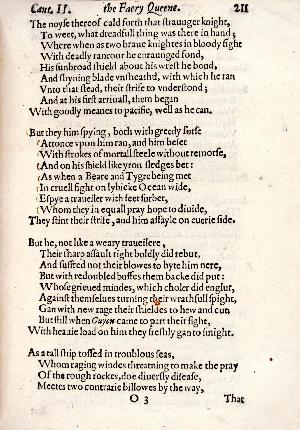 Cant. II. the Faery Queene. 211
The noyse thereof cald forth that straunger knight,
To weet, what dreadfull thing was there in hand;
Where when as two braue knightes in bloody fight
With deadly rancour he enraunged fond,
His sunbroad shield about his wrest he bond,
And shyning blade vnsheathd, with which he ran
Vnto that stead, their strife to vnderstond;
And at his first arriuall, them began
With goodly meanes to pacifie, well as he can.
But they him spying, both with greedy forse
Attonce vpon him ran, and him beset
With strokes of mortall steele without remorse,
And on his shield like yron sledges bet:
As when a Beare and Tygre being met
In cruell fight on lybicke Ocean wide,
Espye a traueiler with feet surbet,
Whom they in equall pray hope to diuide,
They stint their strife, and him assayle on euerie side.
But he, not like a weary traueilere,
Their sharp assault right boldly did rebut,
And suffred not their blowes to byte him nere,
But with redoubled buffes them backe did put:
Whose grieued mindes, which choler did englut,
Against themselues turning their wrathfull spight,
Gan with new rage their shieldes to hew and cut,
But still when Guyon came to part their fight,
With heauie load on him they freshly gan to smight.
As a tall ship tossed in troublous seas,
Whom raging windes threatning to make the pray
Of the rough rockes, doe diuersly disease,
Meetes two contrarie billowes by the way,
O 3 That